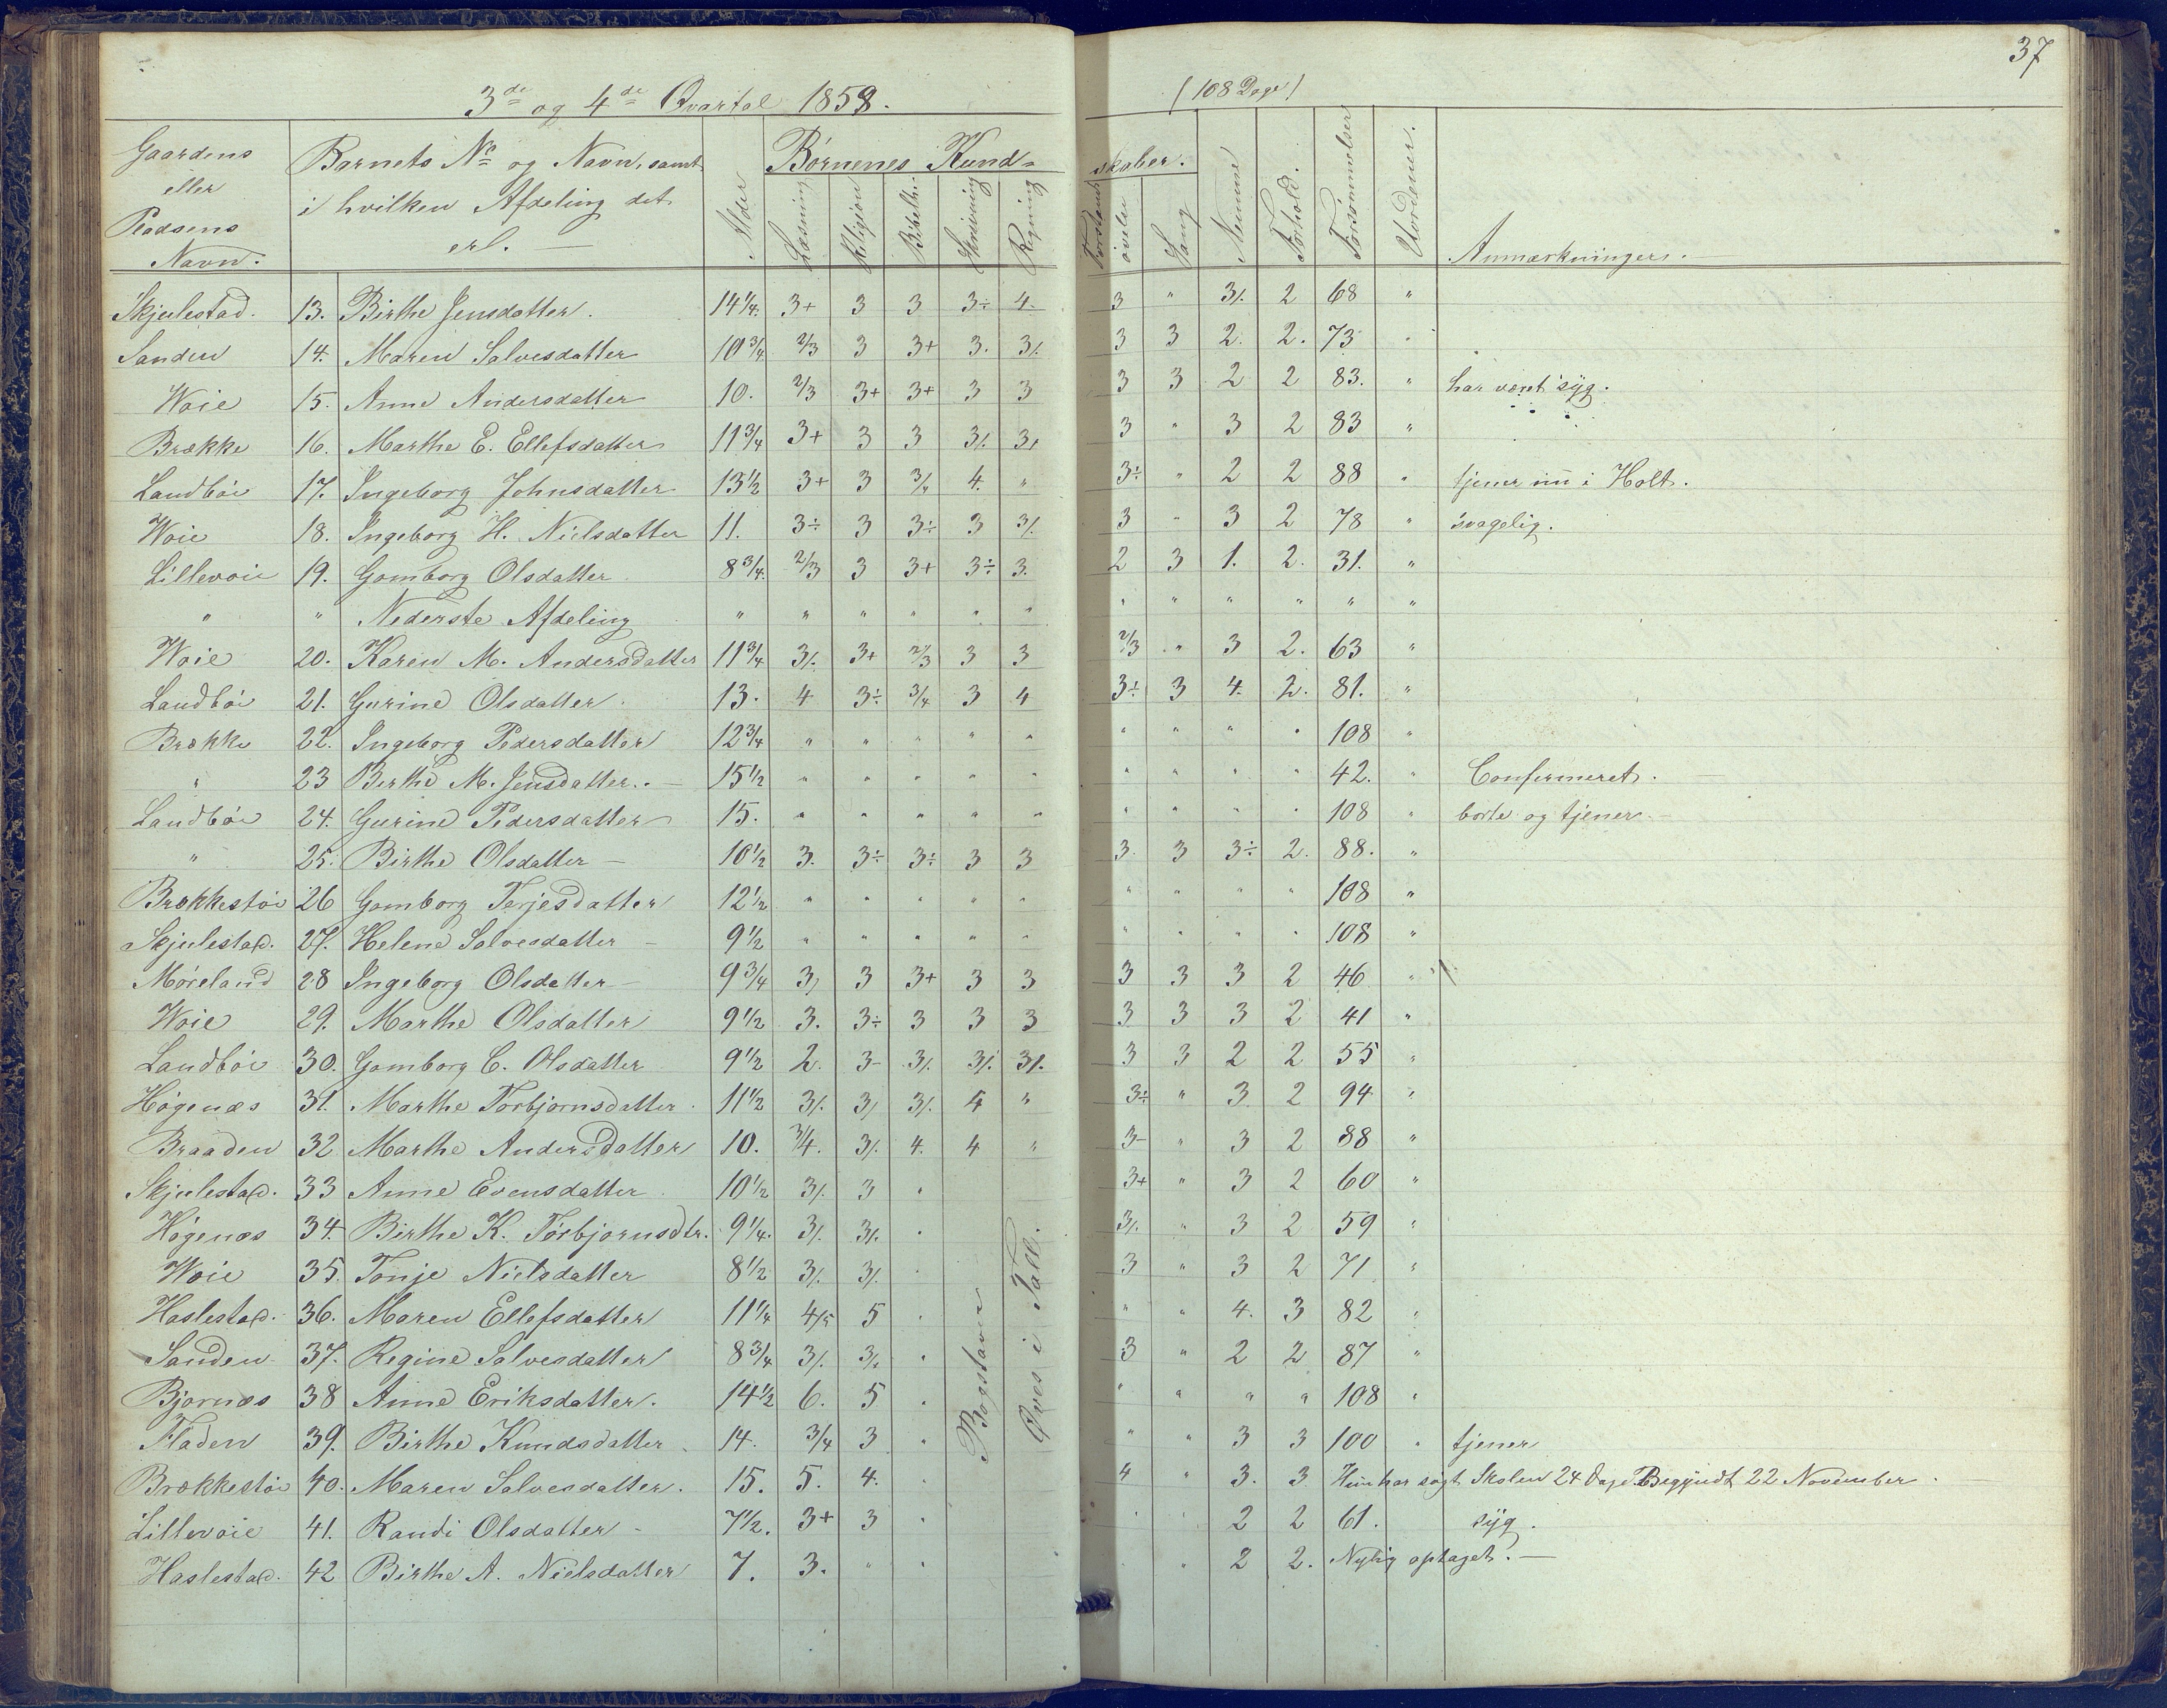 37
3de og 4de Qvartal 1858. (108 Dage)
Gaardens eller Pladsens Navn. | Barnets No og Navn, samt i hvilken Afdeling det er. | Alder | Børnenes Kund- | skaber. | Nemme | Forhold. | Forsømmelser | Uordener. | Anmærkninger.
Læsning | Religion | Bibelh. | Skrivning | Regning | Forstands øvelse | Sang
Skjulestad. 13. Birthe Jensdatter. 14 1/4. 3+ 3 3 3÷ 4. 3 " 3/. 2 68 "
Sanden 14. Maren Salvesdatter 10 3/4. 2/3 3 3+ 3. 3/. 3 3 2. 2. 73 "
Woie 15. Anne Andersdatter 10. 2/3 3+ 3+ 3 3 3 3 2 2 83. " har været syg.
Brække 16. Marthe E. Ellefsdatter 11 3/4 3+ 3 3 3/. 3+ 3 " 3 2 83 "
Landbøe 17. Ingeborg Johnsdatter 13 1/2 3+ 3 3/4 4. " 3÷ " 2 2 88 " tjener nu i Holt.
Woie 18. Ingeborg H. Nielsdatter 11. 3÷ 3 3÷ 3 3/. 3 " 3 2 78 " svagelig.
Lillevoie 19. Gomborg Olsdatter 8 3/4. 2/3 3 3+ 3÷ 3. 2 3 1. 2. 31. "
" " Nederste Afdeling " " " " " " " " " " " "
Woie 20. Karen M. Andersdatter 11 3/4 3/. 3+ 2/3 3 3 2/3 " 3 2. 63 "
Landbøe 21. Gurine Olsdatter 13. 4 3÷ 3/4 3 4 3÷ 3 4. 2. 81. "
Brække 22. Ingeborg Pedersdatter 12 3/4 " " " " " " " " " 108 "
" 23 Berthe M. Jensdatter. 15 1/2 " " " " " " " " " 42. " Confirmeret.
Landbøe 24. Gurine Pedersdatter 15. " " " " " " " " " 108 " borte og tjener.
" 25. Birthe Olsdatter 10 1/2 3. 3÷ 3÷ 3 3 3. 3 3÷ 2. 88. "
Brækkestøe 26 Gomborg Terjesdatter 12 1/2 " " " " " " " " " 108 "
Skjulestad. 27. Helene Salvesdatter 9 1/2 " " " " " " " " " 108 "
Møreland 28 Ingeborg Olsdatter 9 3/4 3/ 3 3+ 3 3 3 3 3 2 46 "
Woie 29. Marthe Olsdatter 9 1/2 3. 3÷ 3 3 3 3 3 3 2 41 "
Landbøe 30. Gomborg C. Olsdatter 9 1/2 2. 3- 3/. 3/. 3/. 3 3 2 2 55 "
Høgenæs 31. Marthe Torbjørnsdatter. 11 1/2 3/. 3/ 3/. 4 " 3÷ " 3 2 94 "
Braaden 32 Marthe Andersdatter 10. 3/4. 3/. 4. 4 " 3- " 3 2 88 "
Skjulestad. 33 Anne Evensdatter 10 1/2 3/. 3 " 3+ " 3 2 60 "
Høgenæs 34. Birthe K. Torbjørnsdtr. 9 1/4. 3/. 3/. " 3/. " 3 2 59 "
Woie 35. Tonje Nielsdatter 8 1/2 3/. 3/. " 3 " 3 2 71 "
Haslestad. 36. Maren Ellefsdatter 11 1/4 4/5 5 " " " 4. 3 82 "
Sanden 37. Regine Salvesdatter 8 3/4 3/. 3/. " 3 " 2 2 87 "
Bjørnæs 38 Anne Eriksdatter. 14 1/2 6. 5 " " " " " 108 "
Fladen 39. Birthe Knudsdatter. 14. 3/4 3 " " " 3 3 100 " tjener
Brækkestøe 40. Maren Salvesdatter. 15. 5. 4. " 4 " 3. 3 Hun har søgt Skolen 24 Dage. Begyndt 22 November
Lillevoie 41. Randi Olsdatter 7 1/2. 3+ 3 " " " 2 2 61. syg.
Haslestad. 42 Birthe A. Nielsdatter 7. 3. " " " " 2 2. Nylig optaget.
Bogstaver
Øves i Tall.